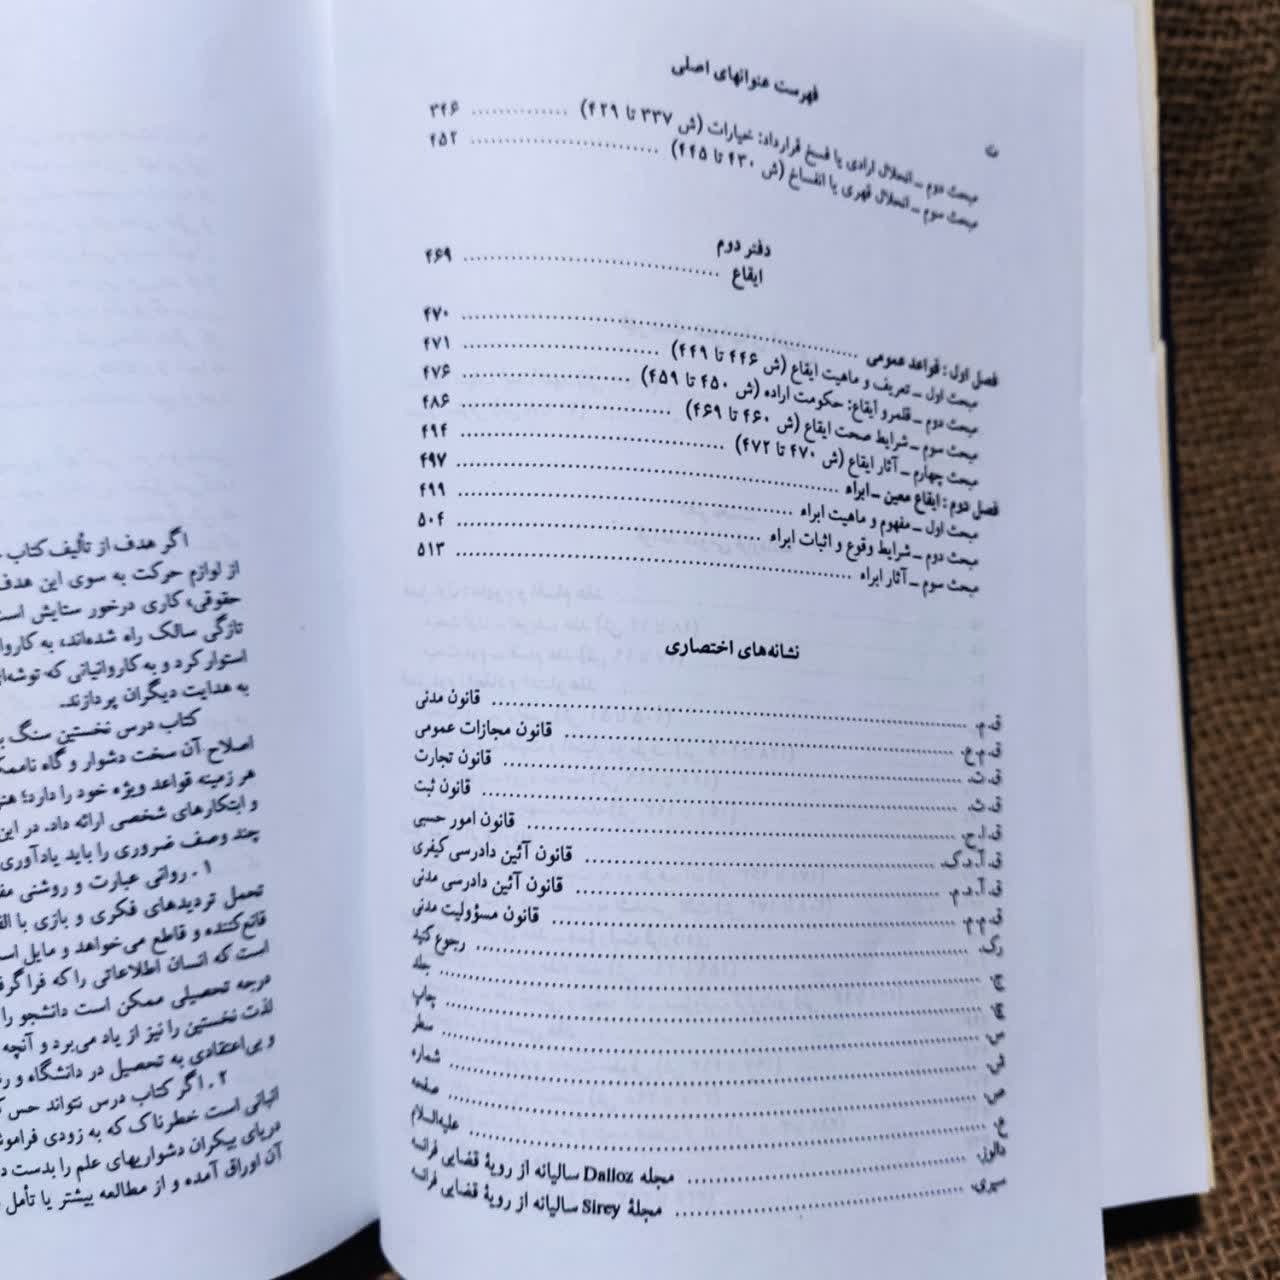 فهرست عنوانهای اصلی
ت
مبحث دوم ـ انحلال ارادی یا فسخ قرارداد: خیارات (ش ۳۳۷ تا ۴۲۹) ............ ۳۴۶
مبحث سوم ـ انحلال قهری یا انفساخ (ش ۴۳۰ تا ۴۴۵) ............ ۴۵۲
دفتر دوم
ایقاع ............ ۴۶۹
فصل اول : قواعد عمومی ............ ۴۷۰
مبحث اول ـ تعریف و ماهیت ایقاع (ش ۴۴۶ تا ۴۴۹) ............ ۴۷۱
مبحث دوم ـ قلمرو ایقاع: حکومت اراده (ش ۴۵۰ تا ۴۵۹) ............ ۴۷۶
مبحث سوم ـ شرایط صحت ایقاع (ش ۴۶۰ تا ۴۶۹) ............ ۴۸۶
مبحث چهارم ـ آثار ایقاع (ش ۴۷۰ تا ۴۷۲) ............ ۴۹۴
فصل دوم : ایقاع معین ـ ابراء ............ ۴۹۷
مبحث اول ـ مفهوم و ماهیت ابراء ............ ۴۹۹
مبحث دوم ـ شرایط وقوع و اثبات ابراء ............ ۵۰۴
مبحث سوم ـ آثار ابراء ............ ۵۱۳
نشانه‌های اختصاری
ق.م. ............ قانون مدنی
ق.م.ع. ............ قانون مجازات عمومی
ق.ت. ............ قانون تجارت
ق.ث. ............ قانون ثبت
ق.ا.ح. ............ قانون امور حسبی
ق.آ.د.ک. ............ قانون آئین دادرسی کیفری
ق.آ.د.م. ............ قانون آئین دادرسی مدنی
ق.م.م. ............ قانون مسؤولیت مدنی
رک. ............ رجوع کنید
ج. ............ جلد
چ. ............ چاپ
س. ............ سطر
ش. ............ شماره
ص. ............ صفحه
ع. ............ علیه‌السلام
دالوز. ............ مجله Dalloz سالیانه از رویهٔ قضایی فرانسه
سیری. ............ مجلهٔ Sirey سالیانه از رویهٔ قضایی فرانسه
اگر هدف از تألیف کتاب
از لوازم حرکت به سوی این هدف
حقوقی، کاری درخور ستایش است
تازگی سالک راه شده‌اند، به
استوار کرد و به کاروانیانی که
به هدایت دیگران پردازند.
کتاب درس نخستین سنگ
اصلاح آن سخت دشوار و گاه
هر زمینه قواعد ویژه خود را دارد؛
و ابتکارهای شخصی ارائه داد. در این
چند وصف ضروری را باید یادآوری
۱ . روانی عبارت و روشنی
تحمل تردیدهای فکری و بازی با
قانع‌کننده و قاطع می‌خواهد و مایل
است که انسان اطلاعاتی را که
درجه تحصیلی ممکن است دانشجو را
لذت نخستین را نیز از یاد می‌برد و آنچه
و بی‌اعتقادی به تحصیل در دانشگاه و
۲ . اگر کتاب درس نتواند حس
انبانی است خطرناک که به زودی
دریای بیکران دشواریهای علم را بدست
آن اوراق آمده و از مطالعه بیشتر یا تأمل